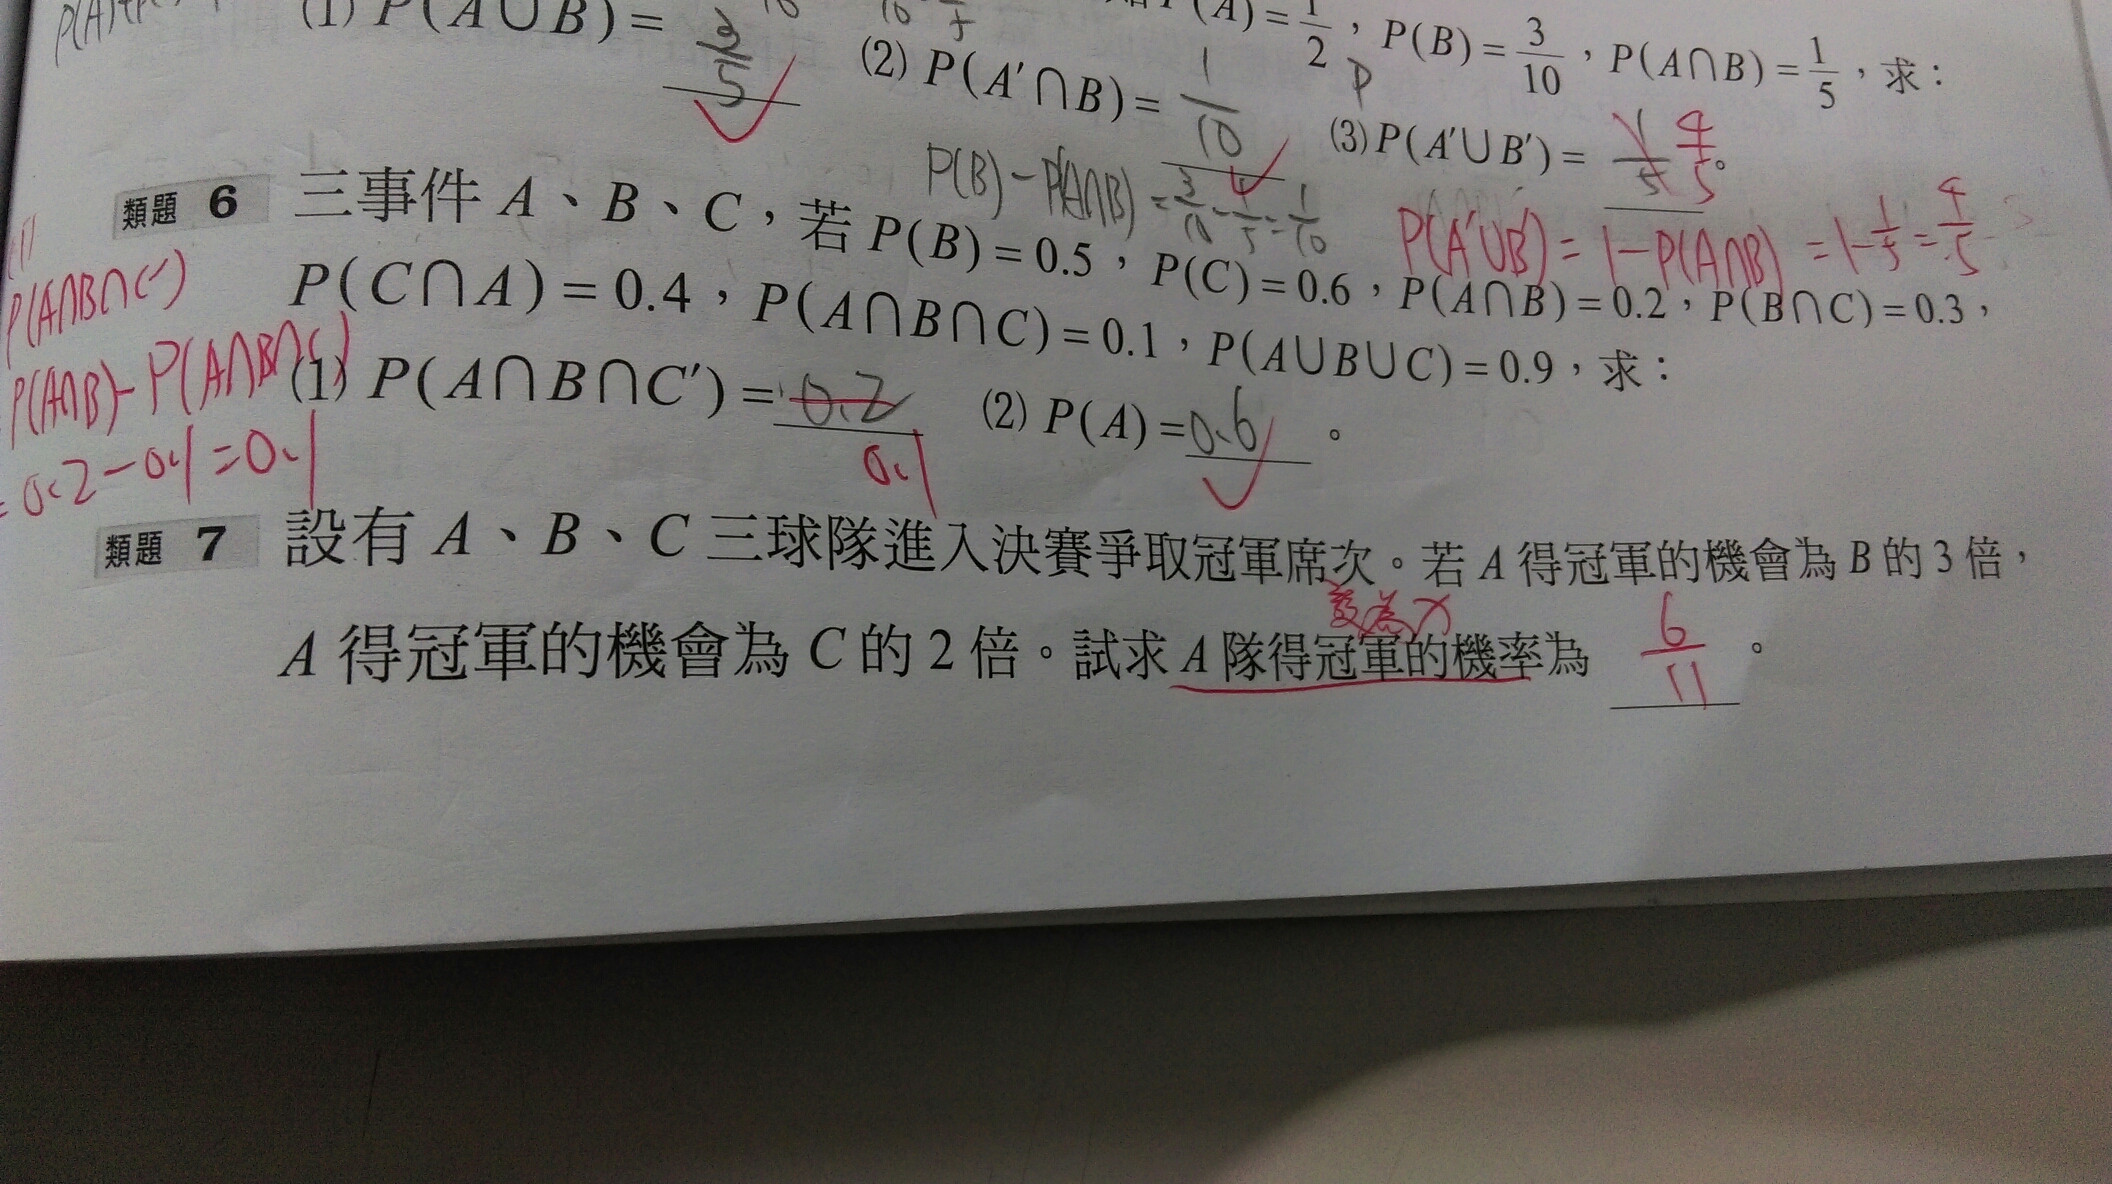 (1) P(A∪B)= 3/5
P(A)=1/2，P(B)=3/10，P(A∩B)=1/5，求：
(2) P(A′∩B)= 1/10
(3) P(A′∪B′)= 1/5 4/5。
P(B)-P(A∩B)=3/10-1/5=1/10
P(A′∪B′)=1-P(A∩B)=1-1/5=4/5
類題 6 三事件 A、B、C，若 P(B)=0.5，P(C)=0.6，P(A∩B)=0.2，P(B∩C)=0.3，
P(C∩A)=0.4，P(A∩B∩C)=0.1，P(A∪B∪C)=0.9，求：
(1) P(A∩B∩C′)= 0.2 0.1 (2) P(A)= 0.6 。
(1)
P(A∩B∩C′)
P(A∩B)-P(A∩B∩C)
=0.2-0.1=0.1
類題 7 設有 A、B、C 三球隊進入決賽爭取冠軍席次。若 A 得冠軍的機會為 B 的 3 倍，
設為x
A 得冠軍的機會為 C 的 2 倍。試求 A 隊得冠軍的機率為 6/11 。